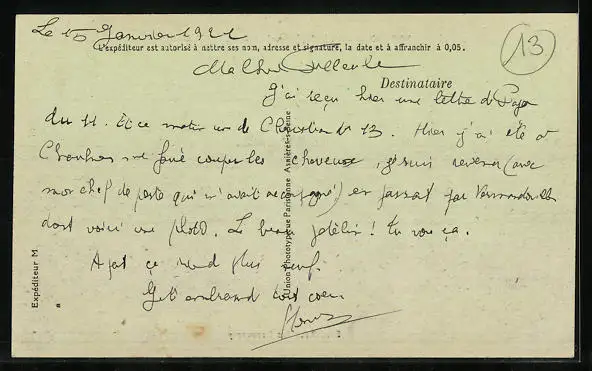 Le 15 Janvier
13
L'expéditeur est autorisé à mettre ses nom, adresse et signature, la date et à affranchir à 0,05.
Destinataire
J'ai reçu hier une lettre de Papa
du 11. Et ce matin une de du 13. Hier j'ai été à
me faire couper les cheveux, je suis revenu (avec
mon chef de poste qui m'avait accompagné) en passant par
dont voici une photo. Le beau patelin ! Tu vois ça.
Je t'embrasse tout cœur
Expéditeur M
Union Phototypique Parisienne Asnières-s-Seine